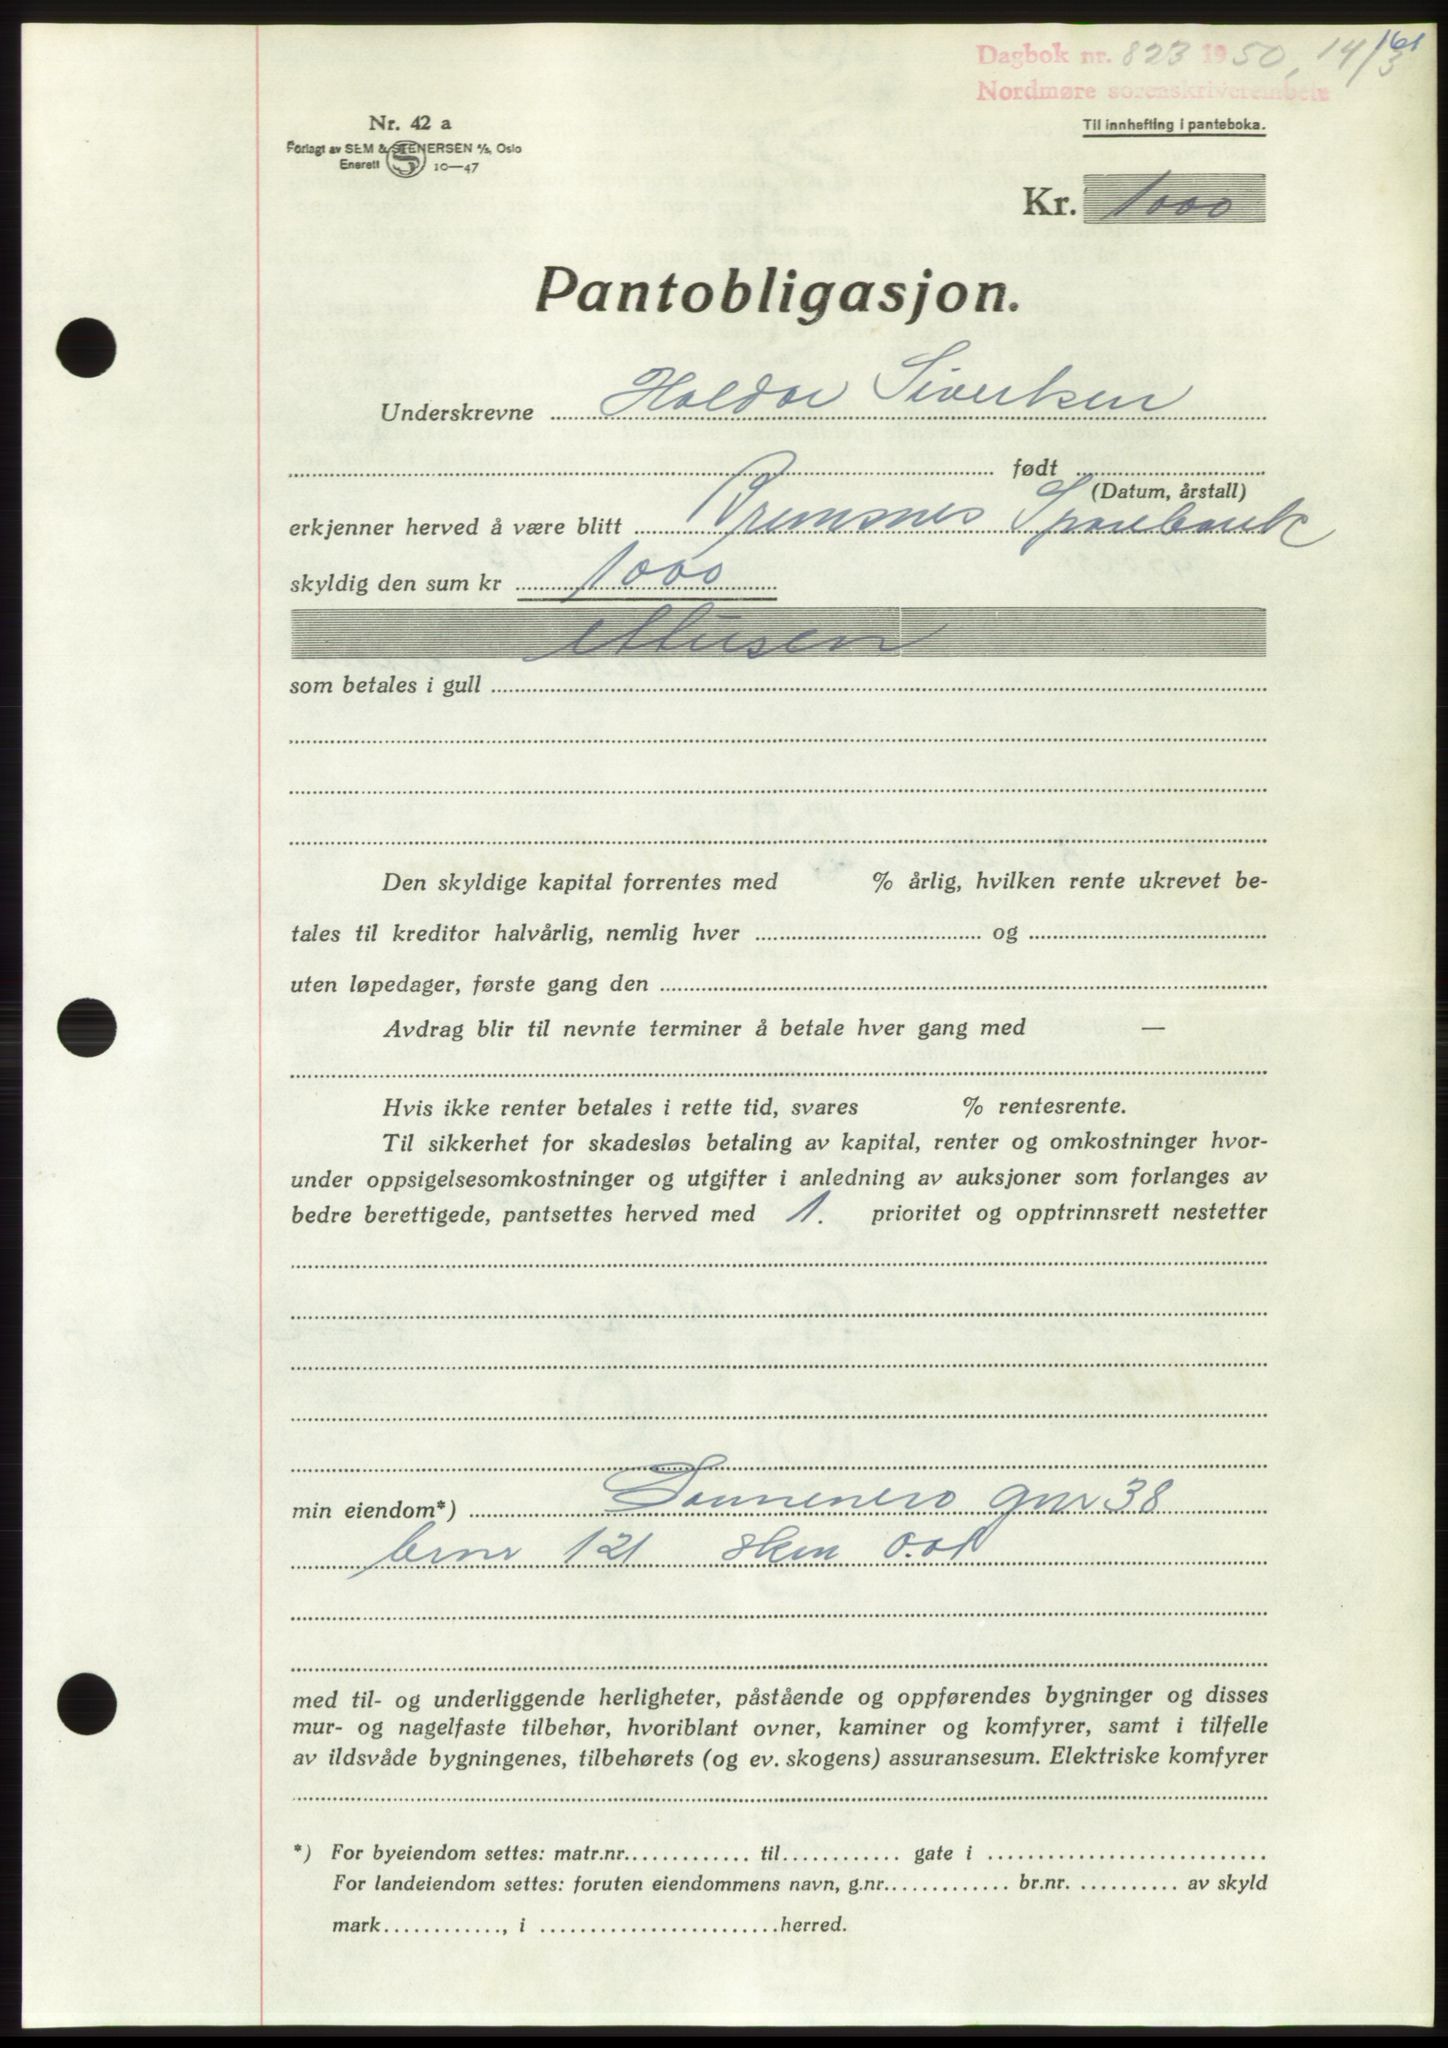 161
Dagbok nr. 823 1950, 14/3
Nordmøre sorenskriverembete
Nr. 42 a
Forlagt av SEM & STENERSEN A/S, Oslo
Enerett S 10—47
Til innhefting i panteboka.
Kr. 1000
Pantobligasjon.
Underskrevne Haldor Sivertsen
født
(Datum, årstall)
erkjenner herved å være blitt Bremsnes Sparebank
skyldig den sum kr 1000
ettusen
som betales i gull
Den skyldige kapital forrentes med % årlig, hvilken rente ukrevet be-
tales til kreditor halvårlig, nemlig hver og
uten løpedager, første gang den
Avdrag blir til nevnte terminer å betale hver gang med —
Hvis ikke renter betales i rette tid, svares % rentesrente.
Til sikkerhet for skadesløs betaling av kapital, renter og omkostninger hvor-
under oppsigelsesomkostninger og utgifter i anledning av auksjoner som forlanges av
bedre berettigede, pantsettes herved med 1. prioritet og opptrinnsrett nestetter
min eiendom*) gnr 38
bnr 121 skm 0.01
med til- og underliggende herligheter, påstående og oppførendes bygninger og disses
mur- og nagelfaste tilbehør, hvoriblant ovner, kaminer og komfyrer, samt i tilfelle
av ildsvåde bygningenes, tilbehørets (og ev. skogens) assuransesum. Elektriske komfyrer
*) For byeiendom settes: matr.nr. til gate i
For landeiendom settes: foruten eiendommens navn, g.nr. br.nr. av skyld
mark , i herred.